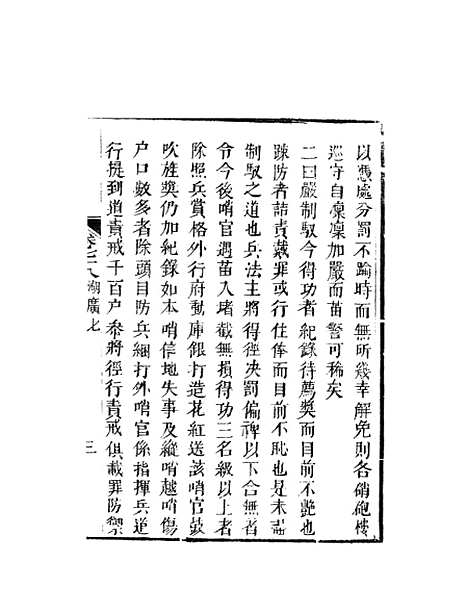 以憑處分罰不踰時而無所幾幸解免則各硝砲樓
巡守自凜凜加嚴而苗警可稀矣
二曰嚴制馭今得功者紀錄待薦獎而目前不艷也
踈防者詰責戴罪或行住俸而目前不恥也是未諳
制馭之道也兵法主將得徑决罰偏裨以下合無着
令今後哨官遇苗入堵截無損得功三名級以上者
除照兵賞格外行府動庫銀打造花紅送該哨官鼓
吹旌奬仍加紀錄如本哨信地失事及縱哨越哨傷
户口數多者除頭目防兵綑打外哨官係指揮兵道
行提到道責戒千百户參將徑行責戒俱載罪防禦
卷之二八 湖廣七 三